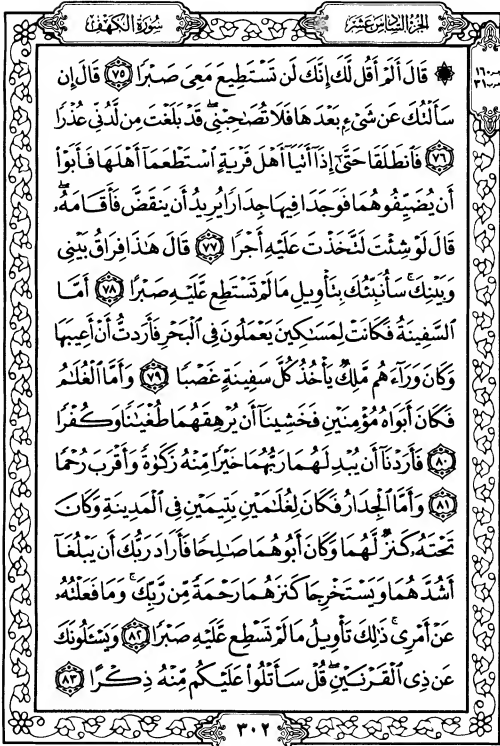 الجزء السادس عشر
سورة الكهف
۞ قَالَ أَلَمْ أَقُل لَّكَ إِنَّكَ لَن تَسْتَطِيعَ مَعِىَ صَبْرًا ٧٥ قَالَ إِن
سَأَلْتُكَ عَن شَىْءٍۭ بَعْدَهَا فَلَا تُصَٰحِبْنِى ۖ قَدْ بَلَغْتَ مِن لَّدُنِّى عُذْرًا
٧٦ فَٱنطَلَقَا حَتَّىٰٓ إِذَآ أَتَيَآ أَهْلَ قَرْيَةٍ ٱسْتَطْعَمَآ أَهْلَهَا فَأَبَوْا۟
أَن يُضَيِّفُوهُمَا فَوَجَدَا فِيهَا جِدَارًا يُرِيدُ أَن يَنقَضَّ فَأَقَامَهُۥ ۖ
قَالَ لَوْ شِئْتَ لَتَّخَذْتَ عَلَيْهِ أَجْرًا ٧٧ قَالَ هَٰذَا فِرَاقُ بَيْنِى
وَبَيْنِكَ ۚ سَأُنَبِّئُكَ بِتَأْوِيلِ مَا لَمْ تَسْتَطِع عَّلَيْهِ صَبْرًا ٧٨ أَمَّا
ٱلسَّفِينَةُ فَكَانَتْ لِمَسَٰكِينَ يَعْمَلُونَ فِى ٱلْبَحْرِ فَأَرَدتُّ أَنْ أَعِيبَهَا
وَكَانَ وَرَآءَهُم مَّلِكٌ يَأْخُذُ كُلَّ سَفِينَةٍ غَصْبًا ٧٩ وَأَمَّا ٱلْغُلَٰمُ
فَكَانَ أَبَوَاهُ مُؤْمِنَيْنِ فَخَشِينَآ أَن يُرْهِقَهُمَا طُغْيَٰنًا وَكُفْرًا
٨٠ فَأَرَدْنَآ أَن يُبْدِلَهُمَا رَبُّهُمَا خَيْرًا مِّنْهُ زَكَوٰةً وَأَقْرَبَ رُحْمًا
٨١ وَأَمَّا ٱلْجِدَارُ فَكَانَ لِغُلَٰمَيْنِ يَتِيمَيْنِ فِى ٱلْمَدِينَةِ وَكَانَ
تَحْتَهُۥ كَنزٌ لَّهُمَا وَكَانَ أَبُوهُمَا صَٰلِحًا فَأَرَادَ رَبُّكَ أَن يَبْلُغَآ
أَشُدَّهُمَا وَيَسْتَخْرِجَا كَنزَهُمَا رَحْمَةً مِّن رَّبِّكَ ۚ وَمَا فَعَلْتُهُۥ
عَنْ أَمْرِى ۚ ذَٰلِكَ تَأْوِيلُ مَا لَمْ تَسْطِع عَّلَيْهِ صَبْرًا ٨٢ وَيَسْـَٔلُونَكَ
عَن ذِى ٱلْقَرْنَيْنِ ۖ قُلْ سَأَتْلُوا۟ عَلَيْكُم مِّنْهُ ذِكْرًا ٨٣
٣٠٢